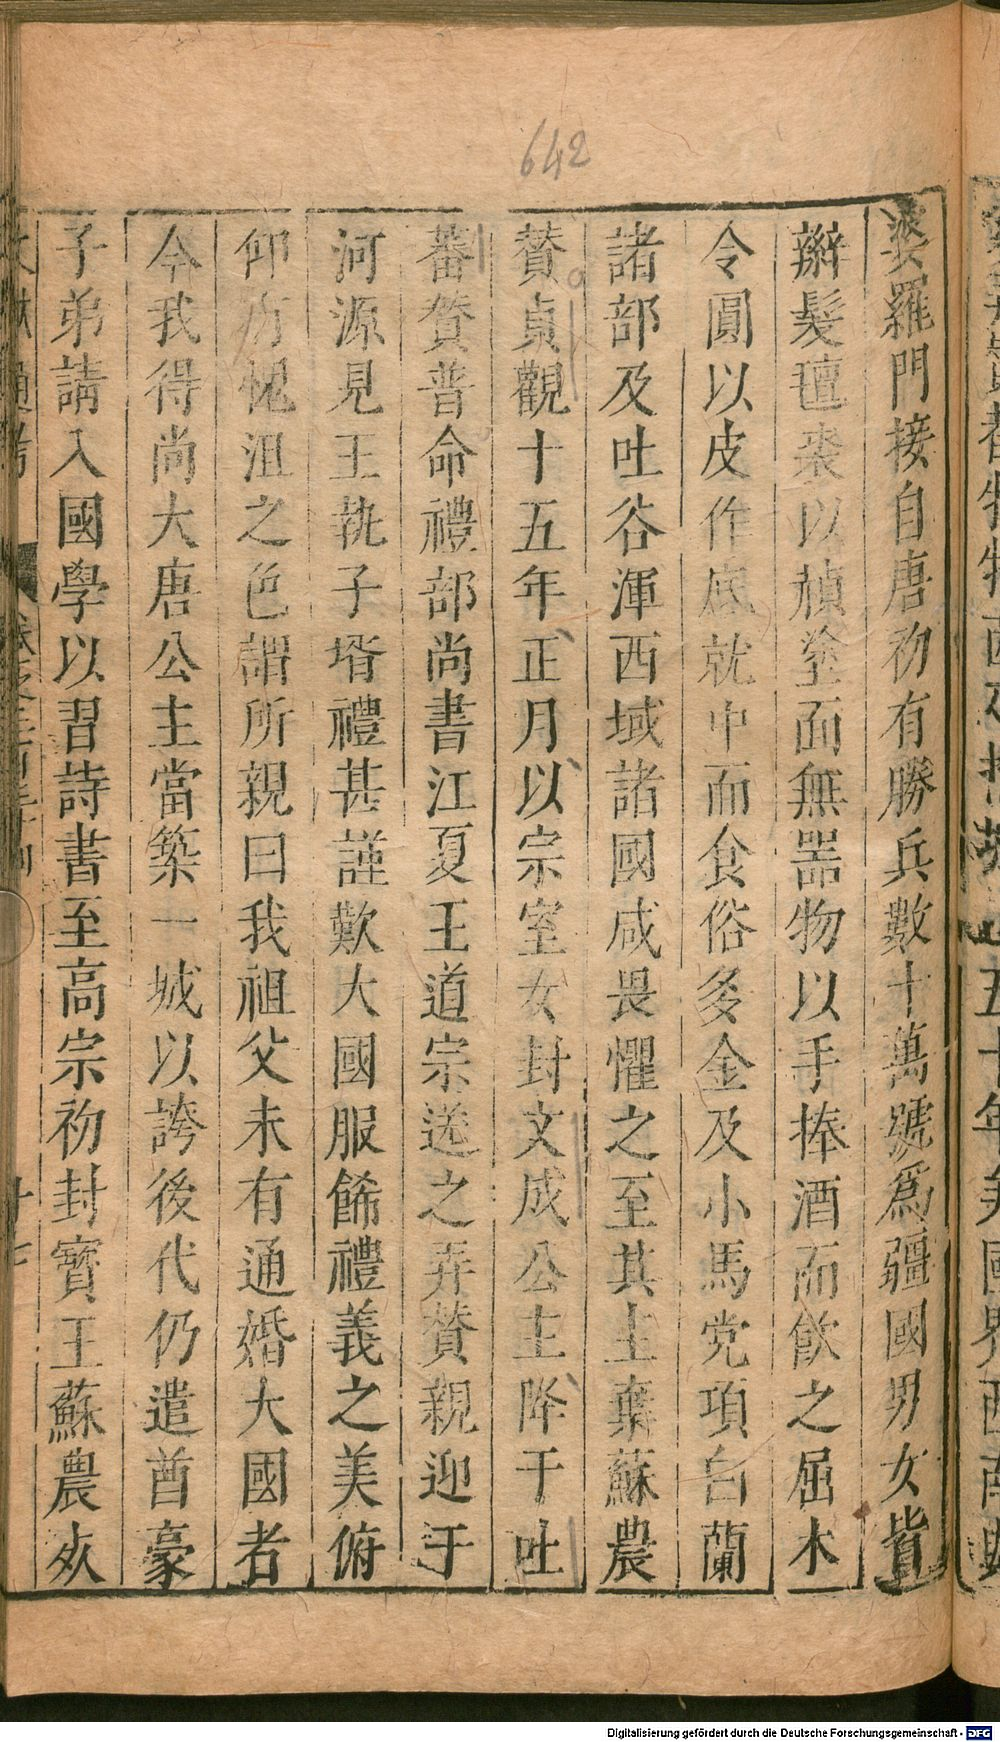 642
婆羅門接自唐初有勝兵數十萬號爲疆國男女皆
辮髮氊裘以赬塗面無器物以手捧酒而飲之屈木
令圓以皮作底就中而食俗多金及小馬党項白蘭
諸部及吐谷渾西域諸國咸畏懼之至其主棄蘇農
賛貞觀十五年正月以宗室女封文成公主降于吐
蕃賛普命禮部尚書江夏王道宗送之弄賛親迎于
河源見王執子壻禮甚謹歎大國服餙禮義之美俯
仰有愧沮之色謂所親曰我祖父未有通婚大國者
今我得尚大唐公主當築一城以誇後代仍遣酋豪
子弟請入國學以習詩書至高宗初封寳王蘇農死
Digitalisierung gefördert durch die Deutsche Forschungsgemeinschaft - DFG